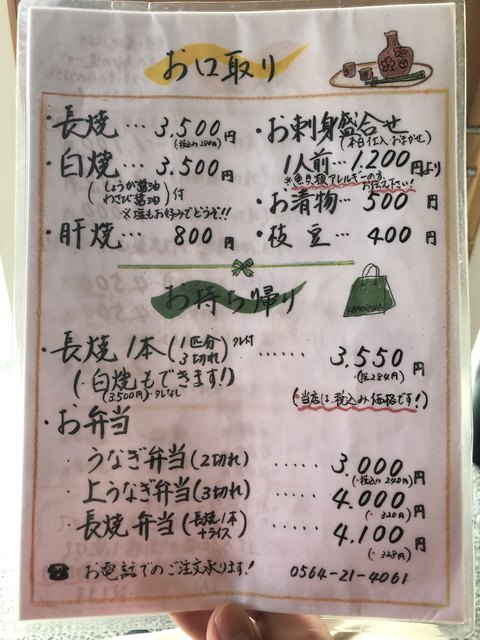 お口取り
・長焼… 3,500円
(税込み280円)
・白焼… 3,500円
(しょうが醤油
わさび醤油)付
※塩もお好みでどうぞ!!
・肝焼… 800円
・お刺身盛合せ
(本日仕入・おまかせ)
1人前… 1,200円より
※魚貝類アレルギーの方、
お伝え下さい!
・お漬物… 500円
・枝豆… 400円
お持ち帰り
・長焼1本(1匹分 3切れ)タレ付 …… 3,550円
(税284円)
(・白焼もできます!)
(3,500円)・タレなし
(当店は、税込み価格です!)
・お弁当
・うなぎ弁当(2切れ) ····· 3,000円
(・税込み240円)
・上うなぎ弁当(3切れ) ····· 4,000円
(・320円)
・長焼弁当(長焼1本+ライス) ····· 4,100円
(・328円)
☎ お電話でのご注文承ります! 0564-21-4061